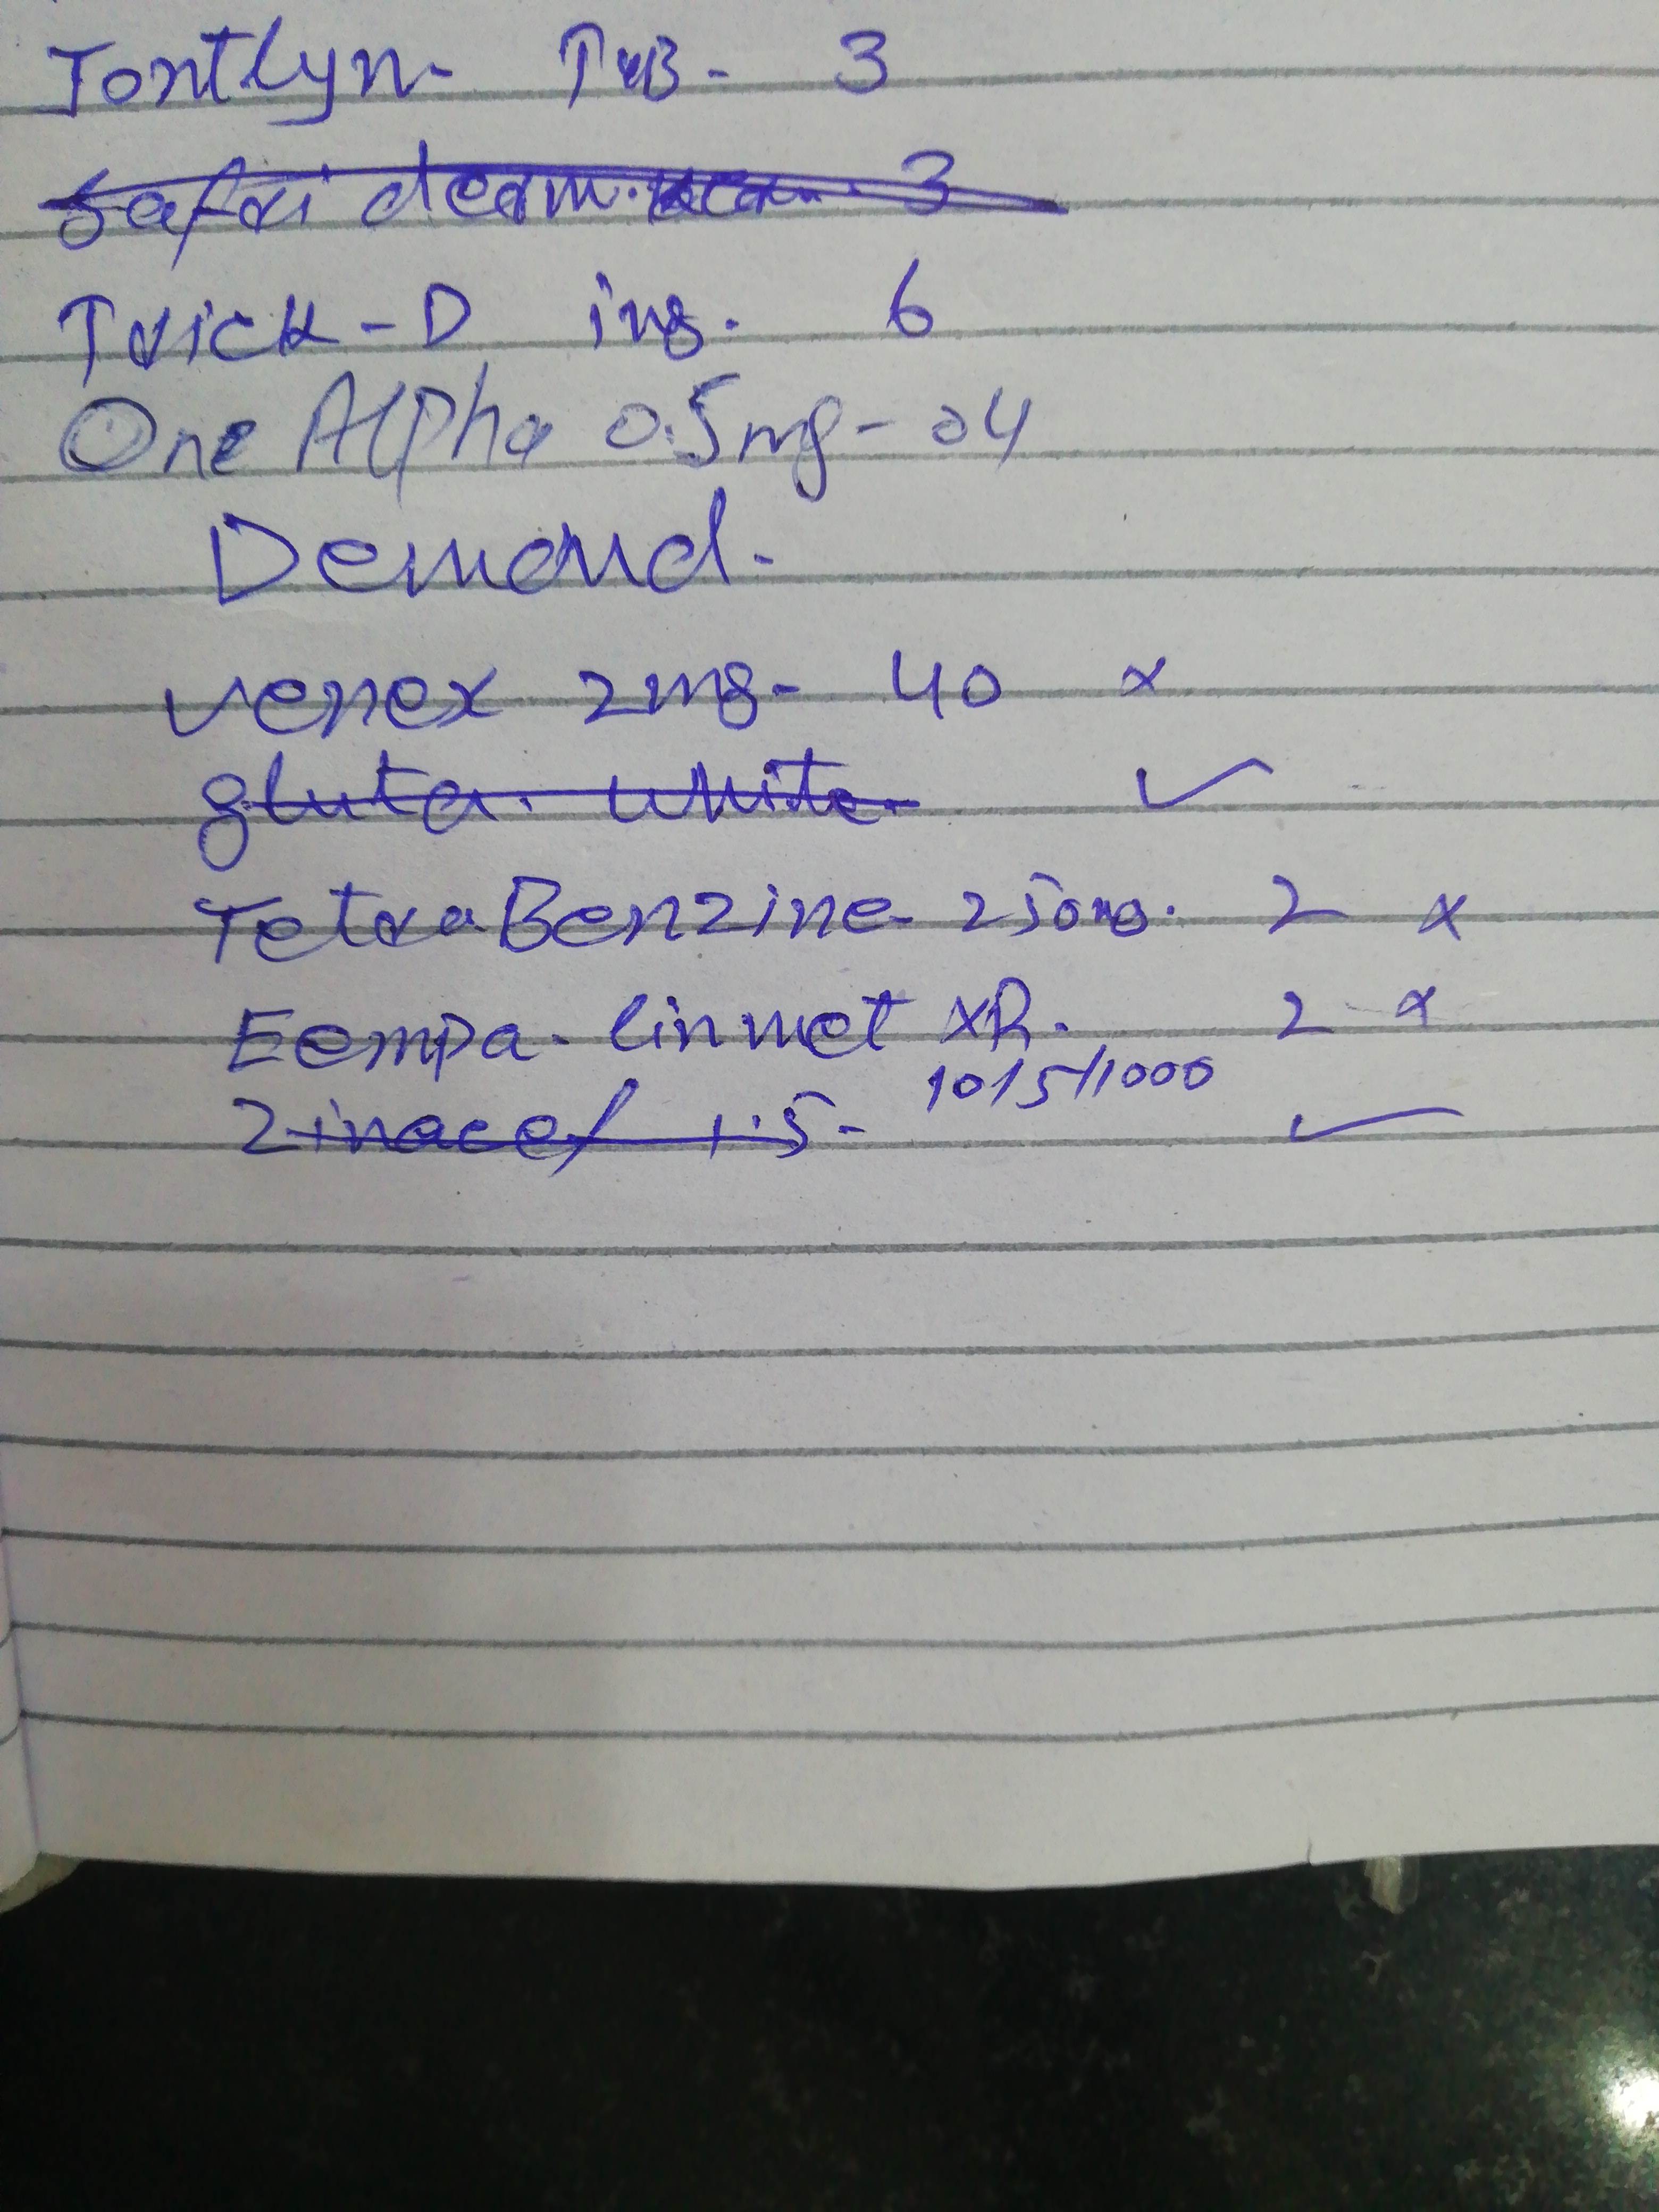 Jontlyn- TuB- 3
Safri derm. 3
Trick-D ing. 6
One Alpha 0.5mg- 04
Demand.
venex 2mg- 40 x
gluta. white. ✓
Tetra.Benzine- 250mg. 2 x
Eempa- linmet XR. 2 x
10/5/1000
Zinacef 1.5- ✓